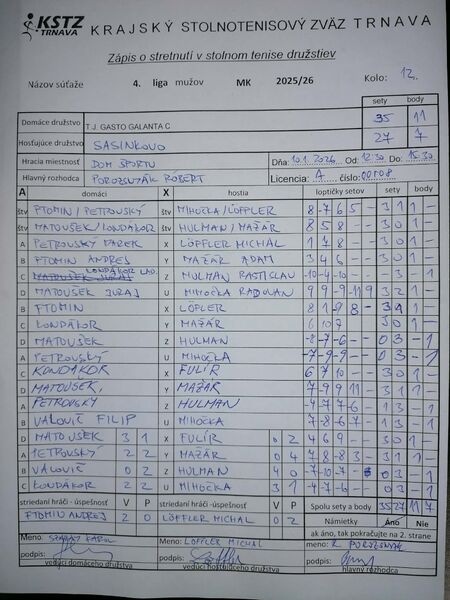 KSTZ TRNAVA KRAJSKÝ STOLNOTENISOVÝ ZVÄZ TRNAVA
Zápis o stretnutí v stolnom tenise družstiev
Názov súťaže 4. liga mužov MK 2025/26 Kolo: 12.
sety body
Domáce družstvo T.J. GASTO GALANTA C 35 11
Hosťujúce družstvo SASINKOVO 27 7
Hracia miestnosť DOM ŠPORTU Dňa: 10.1.2026 Od: 12:30 Do: 15:30
Hlavný rozhodca POROZSNYÁK ROBERT Licencia: A číslo: 00108
A domáci X hostia loptičky setov sety body
štv PTOMIN / PETROVSKÝ štv MIHOČKA / LÖFFLER 8 -7 6 5 - 3 1 1 -
štv MATOUŠEK / KONDÁKOR štv HULMAN / MAŽÁR 8 5 8 - - 3 0 1 -
A PETROVSKÝ MAREK X LÖFFLER MICHAL 1 7 8 - - 3 0 1 -
B PTOMIN ANDREJ Y MAZÁR ADAM 3 4 6 - - 3 0 1 -
C KONDÁKOR LAD. Z HULMAN RASTISLAV -10 -4 -10 - - 0 3 - 1
D MATOUŠEK JURAJ U MIHOČKA RADOVAN 9 9 -9 -11 9 3 2 1 -
B PTOMIN X LÖFLER 8 1 -9 8 - 3 1 -
C KONDÁKOR Y MAŽÁR 6 10 7 3 0 1 -
D MATOUŠEK Z HULMAN -8 -7 -6 - - 0 3 - 1
A PETROVSKÝ U MIHOČKA -7 -9 -9 - - 0 3 - 1
C KONDÁKOR X FULÍR 6 7 10 - - 3 0 1 -
D MATOUŠEK, Y MAŽÁR 7 -9 9 11 - 3 1 1 -
A PETROVSKÝ Z HULMAN -4 -7 7 -6 - 1 3 - 1
B VALOVIČ FILIP U MIHOČKA -7 8 -6 -7 - 1 3 - 1
D MATOUŠEK 3 1 X FULÍR 0 2 4 6 9 - - 3 0 1 -
A PETROVSKÝ 2 2 Y MAŽÁR 0 4 7 8 -8 3 - 3 1 1 -
B VALOVIČ 0 2 Z HULMAN 4 0 -7 -10 -7 - 0 3 - 1
C KONDÁKOR 2 2 U MIHOČKA 3 1 -4 -7 -6 - - 0 3 - 1
striedaní hráči - úspešnosť V P striedaní hráči - úspešnosť V P Spolu sety a body 35 27 11 7
PTOMIN ANDREJ 2 0 LÖFFLER MICHAL 0 2 Námietky Áno Nie
ak áno, tak pokračujte na 2. strane
Meno: KAROL Meno: LÖFFLER MICHAL meno: R. POROZSNYÁK
podpis: podpis: podpis:
vedúci domáceho družstva vedúci hosťujúceho družstva hlavný rozhodca